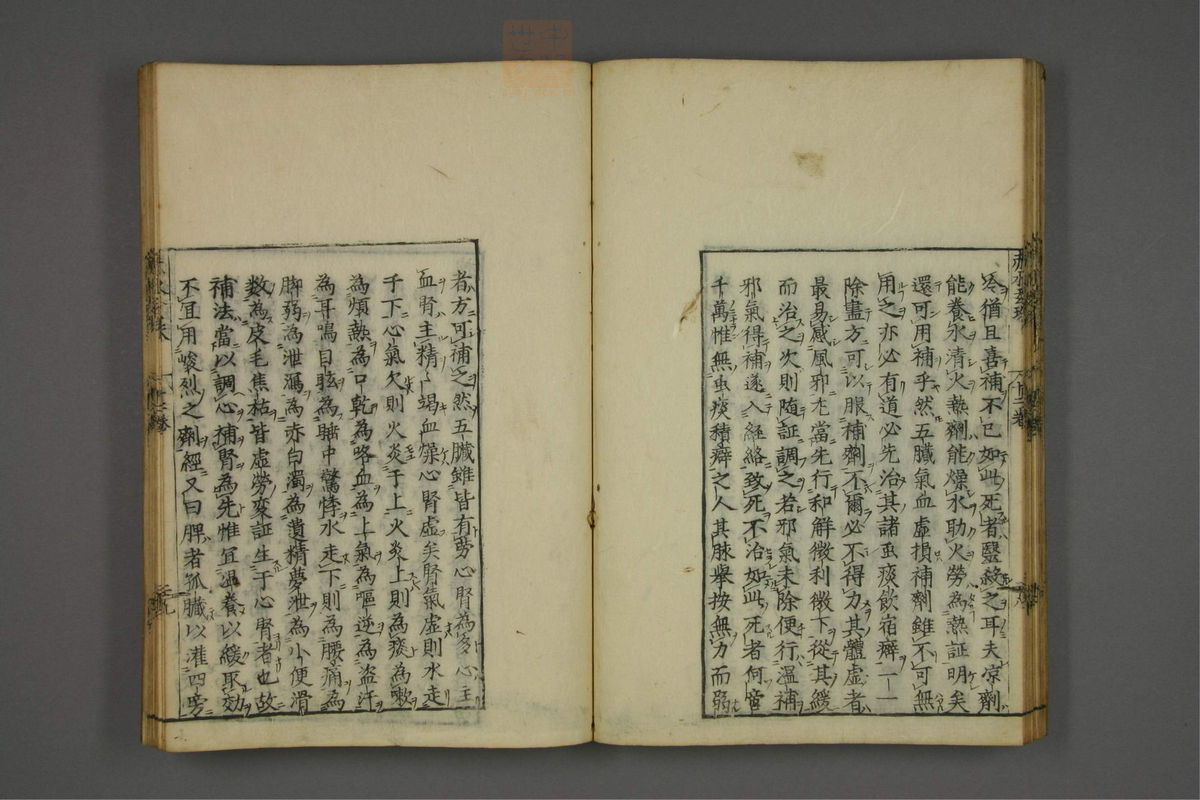 冷猶且喜補不已如此死者醫終之耳夫凉劑
能養水清火熱劑能燥水助火勞為熱証明矣
還可用補乎然五臓氣血虛損補劑雖不可無
用之亦必有道必先治其諸虫痰飲宿癖一一
除盡方可以服補劑不爾必不得力其體虛者
最易感風邪尤當先行和解微利微下從其緩
而治之次則随証調之若邪氣未除便行溫補
邪氣得補遂入経絡致死不治如此死者何啻
千萬惟無虫痰積癖之人其脉舉按無力而弱
者方可補之然五臓雖皆有勞心腎為多心主
血腎主精精竭血燥心腎虛矣腎氣虛則水走
于下心氣欠則火炎于上火炎上則為痰為嗽
為煩熱為口乾為咯血為上氣為嘔逆為盗汗
為耳鳴目眩為睡中驚悸水走下則為腰痛為
脚弱為泄瀉為赤白濁為遺精夢泄為小便滑
数為皮毛焦枯皆虛勞変証生于心腎者也故
補法當以調心補腎為先惟宜温養以緩取効
不宜用峻烈之劑經又曰脾者孤臓以灌四旁